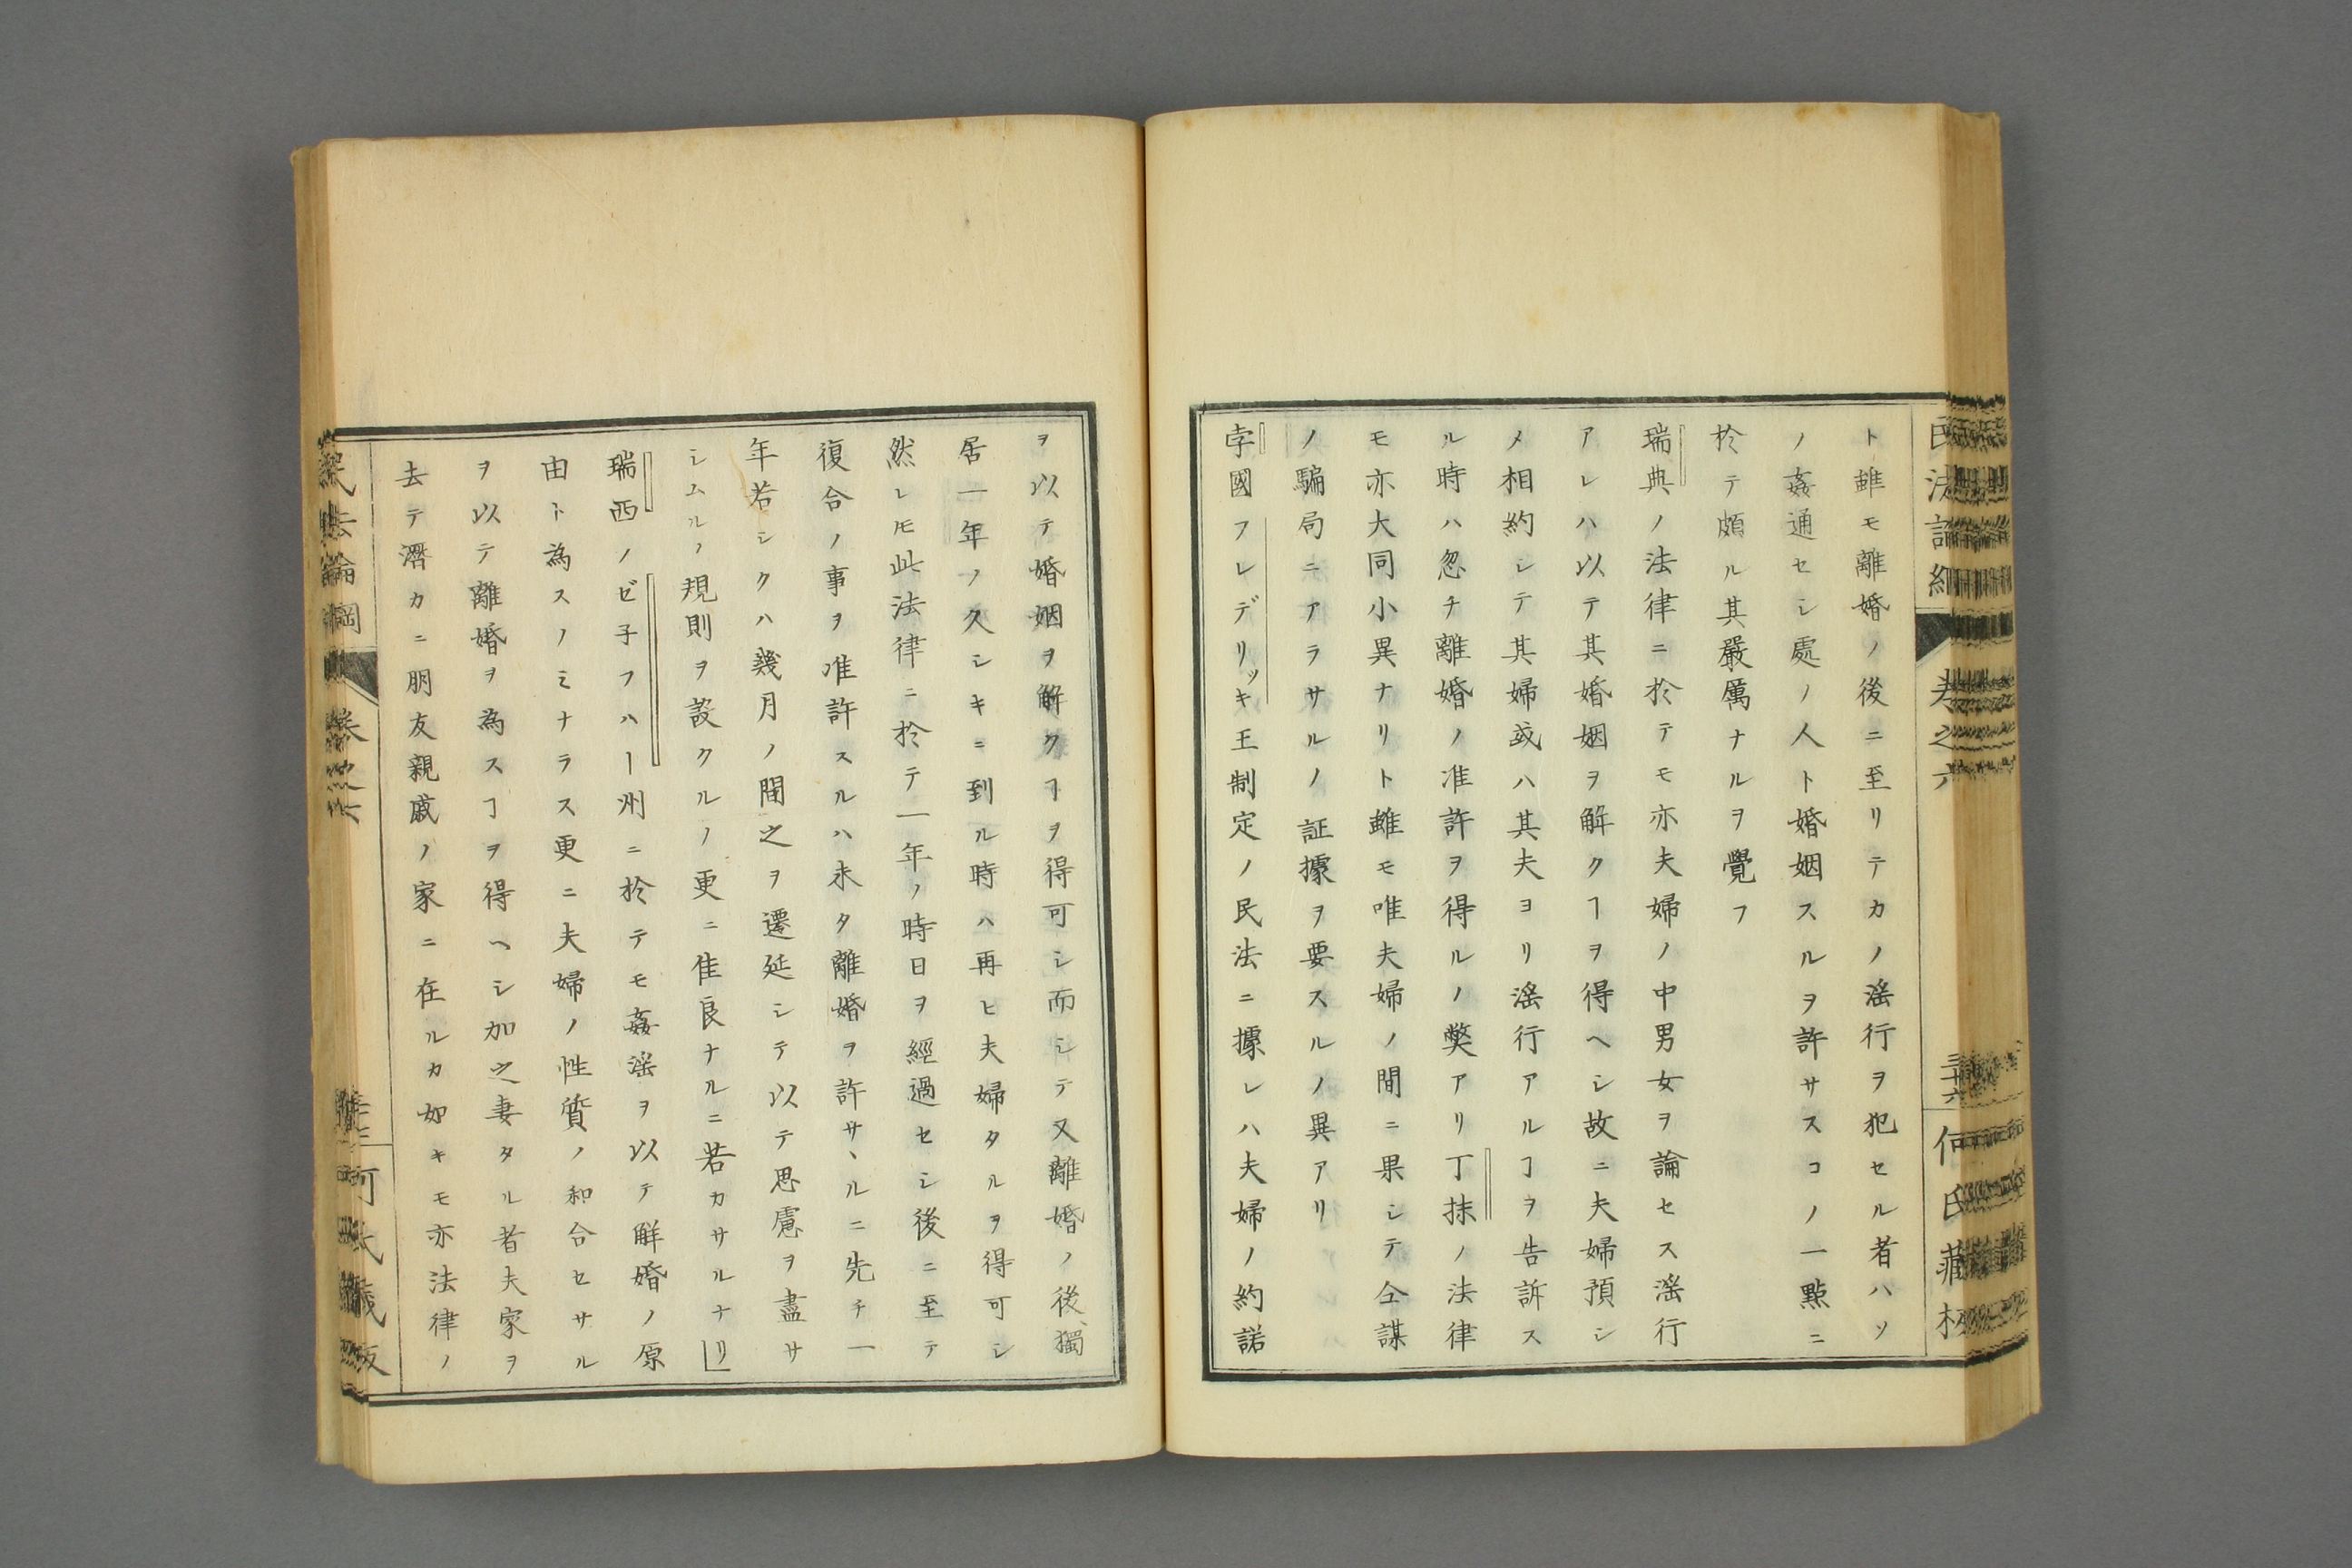 民法論綱 卷之六 三十六 何氏藏板
ト雖モ離婚ノ後ニ至リテカノ滛行ヲ犯セル者ハソ
ノ姦通セシ處ノ人ト婚姻スルヲ許サスコノ一點ニ
於テ頗ル其嚴厲ナルヲ覺フ
瑞典ノ法律ニ於テモ亦夫婦ノ中男女ヲ論セス滛行
アレハ以テ其婚姻ヲ解クヿヲ得ヘシ故ニ夫婦預シ
メ相約シテ其婦或ハ其夫ヨリ滛行アルヿヲ告訴ス
ル時ハ忽チ離婚ノ准許ヲ得ルノ弊アリ丁抹ノ法律
モ亦大同小異ナリト雖モ唯夫婦ノ間ニ果シテ仝謀
ノ騙局ニアラサルノ証據ヲ要スルノ異アリ
孛國フレデリッキ王制定ノ民法ニ據レハ夫婦ノ約諾
ヲ以テ婚姻ヲ解クヿヲ得可シ而シテ又離婚ノ後獨
居一年ノ久シキニ到ル時ハ再ヒ夫婦タルヲ得可シ
然レ𪜈此法律ニ於テ一年ノ時日ヲ經過セシ後ニ至テ
復合ノ事ヲ准許スルハ未タ離婚ヲ許サヽルニ先チ一
年若シクハ幾月ノ間之ヲ遷延シテ以テ思慮ヲ盡サ
シムルノ規則ヲ設クルノ更ニ佳良ナルニ若カサルナリ
瑞西ノゼ子フハー州ニ於テモ姦滛ヲ以テ解婚ノ原
由ト為スノミナラス更ニ夫婦ノ性質ノ和合セサル
ヲ以テ離婚ヲ為スヿヲ得ヘシ加之妻タル者夫家ヲ
去テ濳カニ朋友親戚ノ家ニ在ルカ如キモ亦法律ノ
民法論綱 卷之六 何氏藏板